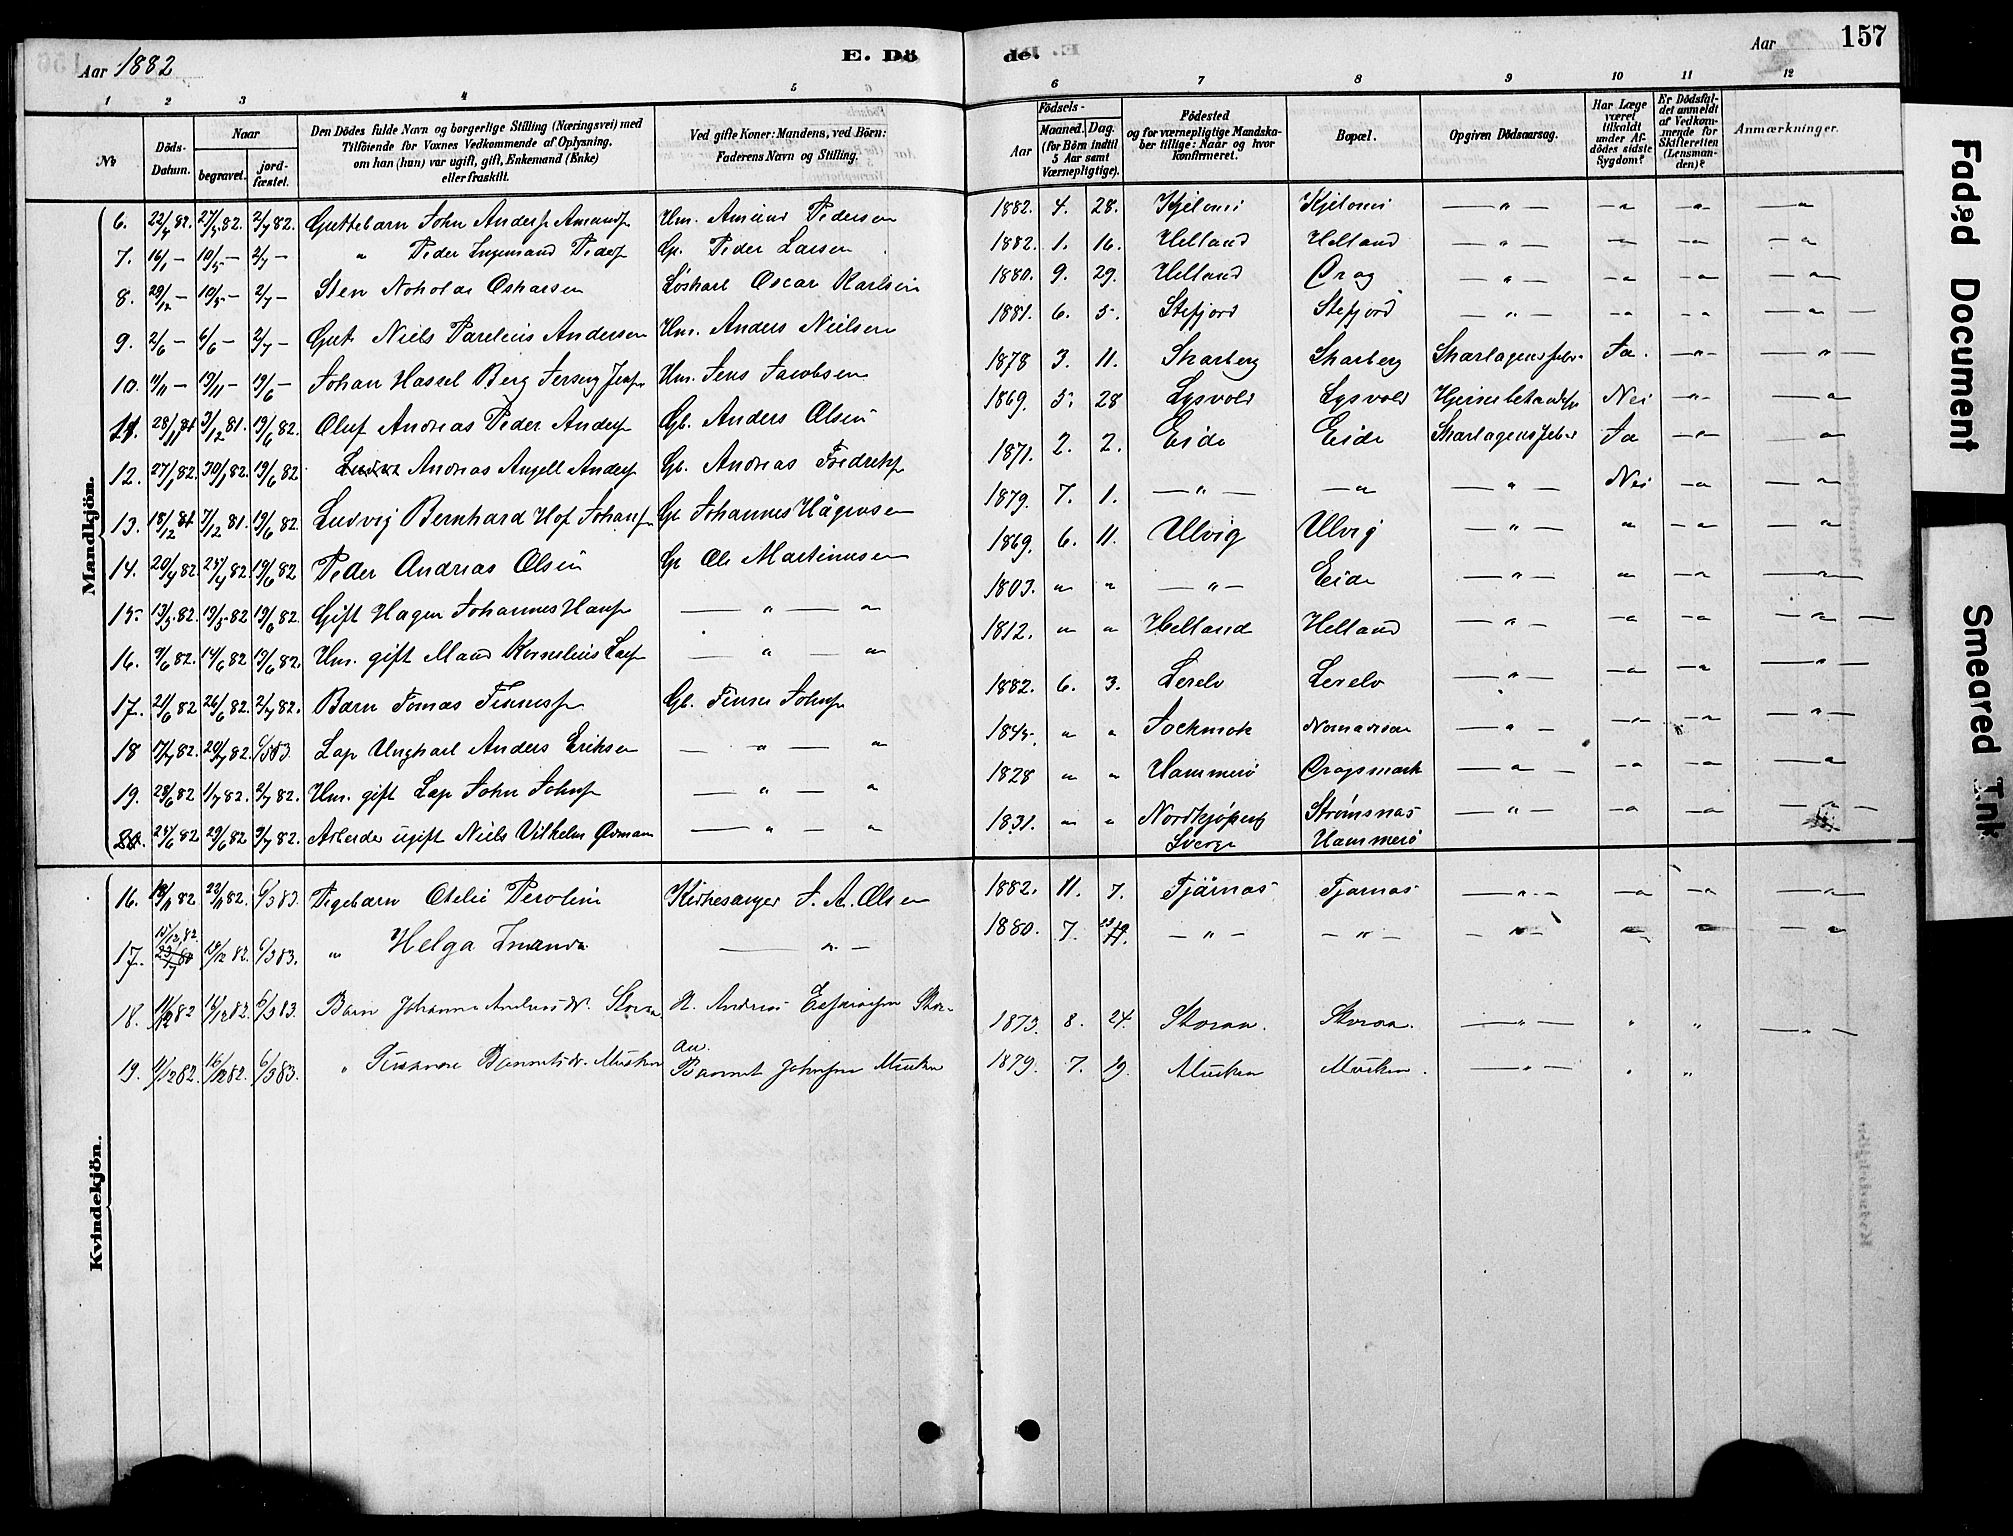 Aar 1882 E. Dö
de. Aar 157
1 2 3 4 5
6 7 8 9 10 11 12
No
Döds-
Datum.
Naar
begravet.
jord-
fæstet.
Den Dödes fulde Navn og borgerlige Stilling (Næringsvei) med
Tilföiende for Voxnes Vedkommende af Oplysning,
om han (hun) var ugift, gift, Enkemand (Enke)
eller fraskilt.
Ved gifte Koner: Mandens, ved Börn:
Faderens Navn og Stilling.
Födsels-
Aar
Maaned. Dag.
(for Börn indtil
5 Aar samt
Værnepligtige).
Födested
og for værnepligtige Mandska-
ber tillige: Naar og hvor
konfirmeret.
Bopæl.
Opgiven Dödsaarsag.
Har Læge
været
tilkaldt
under Af-
dödes sidste
Sygdom?
Er Dödsfal-
det anmeldt
af Vedkom-
mende for
Skifteretten
(Lensman-
den)?
Anmærkninger.
Mandkjön.
6. 22/7 82. 27/7 82. 2/7 82. Guttebarn John Anders. Amunds. Hm. Amund Pedersen 1882. 4. 28. Kjelvmi Kjelvmi — " — — " — " — "
7. 16/1 — 10/5 — 2/7 — " Peder Ingemand Peders. Gp. Peder Larsen 1882. 1. 16. Helland Helland — " — — " — " — "
8. 29/12 — 10/5 — 2/7 — Sten Nokolai Oskarsen Løskarl Oscar Karlsen 1880. 9. 29. Helland Drag — " — — " — " — "
9. 2/6 — 6/6 — 2/7 — Gut Niels Parelius Andersen Hm. Anders Nielsen 1881. 6. 5. Stefjord Stefjord — " — — " — " — " —
10. 11/11 — 19/11 — 19/6 — Johan Hassel Berg Jens. Hm. Jens Jacobsen 1878 3. 11. Skarberg Skarberg Skarlagensfeber Ja. — " — — " —
11. 28/11 81 3/12 81. 19/6 82. Oluf Andreas Peder Anders. Gb. Anders Olsen 1869. 5. 28 Lysvold Lysvold Hjernebetændelse Nei — " — "
12. 27/1 82. 30/1 82. 19/6 82 Andreas Angell Anders. Gb. Andreas Fredriks. 1871. 2. 2. Eide Eide Skarlagensfeber Ja — " — "
13. 18/12 81 7/12 81. 19/6 82. Ludvig Bernhard Hof Johans. Gp. Johannes Hågensen 1879. 7. 1. — " — — " — " — Nei — " — "
14. 20/4 82. 25/4 82. 19/6 82 Peder Andreas Olsen Gp. Ole Martinusen 1869. 6. 11. Ulvig Ulvig — " — " — " — "
15. 13/5 82. 19/5 82 19/6 82. Gift Hagen Johannes Hans. — " — " 1803. " " — " — Eide — " — " — " — "
16. 9/6 82. 14/6 82 19/6 82. Hm. gift Mand Kornelius Lars. — " — " 1812. " " Helland Helland — " — — " — " — " —
17. 21/6 82 26/6 82. 2/7 82. Barn Tomas Finnes. Gb. Finner Johns. 1882. 6. 3. Lerelv Lerelv — " — — " — " — " —
18 17/7 82. 20/7 82. 6/5 83. Lap Ungkarl Anders Eriksen — " — " 1845. " " Jockmok — " — — " — " — " —
19. 28/6 82 1/7 82. 2/7 82. Hm. gift Lap John Johns. — " — " 1828 " " Hammerø Dragsmark — " — — " — " — "
20. 25/6 82 29/6 82 9/7 82. Arbeider ugift Niels Vilhelm Øvman — " — " 1831. " " Nordkjøping Strømsnæs — " — — " — " — " —
Sverge Hammerø
Kvindekjön.
16. 18/11 82 22/11 82. 6/5 83. Pigebarn Otelie Peroline Kirkesanger J. A. Olsen 1882. 11. 7. Tjärnæs Tjærnæs — " — — " — " — "
15/12 82.
17. 19/12 82. 6/5 83. " Helga Inanda — " — 1880. 7. — " — — " — — " — — " — " — "
18. 11/12 82 16/12 82. 6/5 83. Barn Johanna Andreasdtr. Storaa N. Andreas 1873. 8. 24. Storaa. Storaa. — " — " " — " —
19. 11/12 82. 16/12 82. 6/5 83. " Bannetsdtr. Musken Bannet Johnsen Musken 1879. 7. 19. Musken Musken. — " — " "
Faded Document
Smeared Ink